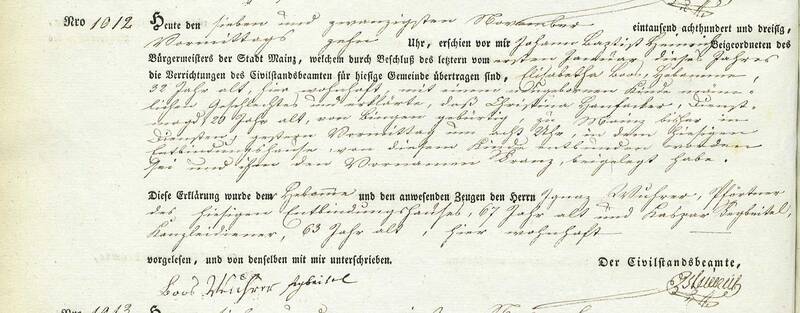 Nro 1012 Heute den sieben und zwanzigsten November eintausend achthundert und dreißig,
Vormittags zehn Uhr, erschien vor mir Johann Baptist Beigeordneten des
Bürgermeisters der Stadt Mainz, welchem durch Beschluß des letztern vom ersten Januar dieses Jahres
die Verrichtungen des Civilstandsbeamten für hiesige Gemeinde übertragen sind, Elisabetha Boos, Hebamme,
32 Jahr alt, hier wohnhaft, mit einem neugebornen Kinde männ-
lichen Geschlechts und erklärte, daß Christina Dienst-
magd 20 Jahr alt, von Bingen gebürtig, zu Mainz bisher im
Diensten, gestern Vormittag um acht Uhr, in dem hiesigen
Entbindungshause, von diesem Kinde entbunden worden
sei und ihm den Vornamen Franz, beigelegt habe.
Diese Erklärung wurde dem Hebamme und den anwesenden Zeugen den Herrn Ignaz Wuhrer, Pförtner
des hiesigen Entbindungshauses, 67 Jahr alt und Kaspar Segbeitel,
Kanzleidiener, 63 Jahr alt, hier wohnhaft
vorgelesen, und von denselben mit mir unterschrieben. Der Civilstandsbeamte,
Boos Wuhrer Segbeitel
Nro 1013